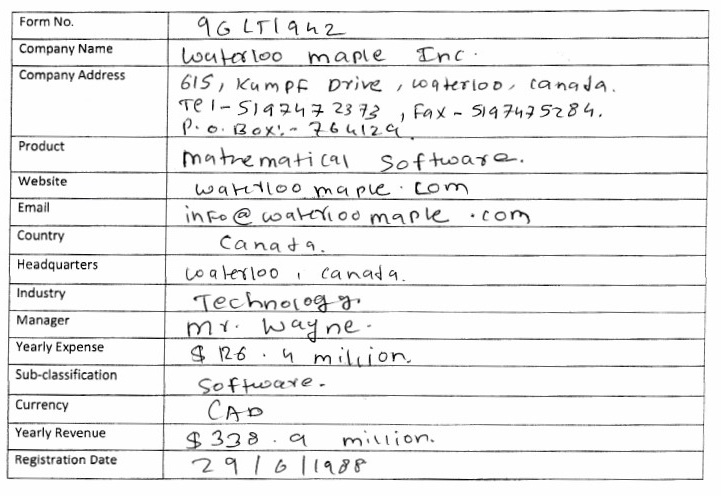 Form No. 9GLT1942
Company Name Waterloo maple Inc.
Company Address 615, Kumpf Drive, waterloo, canada.
Tel-5197472373, Fax-5197475284.
P.O. Box:- 764129.
Product mathematical Software.
Website waterloomaple.com
Email info@waterloomaple.com
Country Canada.
Headquarters waterloo, canada.
Industry Technology.
Manager Mr. Wayne.
Yearly Expense $126.4 million.
Sub-classification Software.
Currency CAD
Yearly Revenue $338.9 million.
Registration Date 29/6/1988